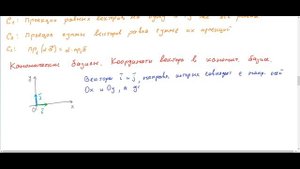 C₁: Проекции равных векторов на одну и ту же ось равны
C₂: Проекция суммы векторов равна сумме их проекций
C₃: пр (α a̅) = α · пр a̅
Канонический базис. Координаты вектора в канонич. базисе
y
j
i
x
Векторы i̅ и j̅, направл. которых совпадает с направл. осей
Ox и Oy, и